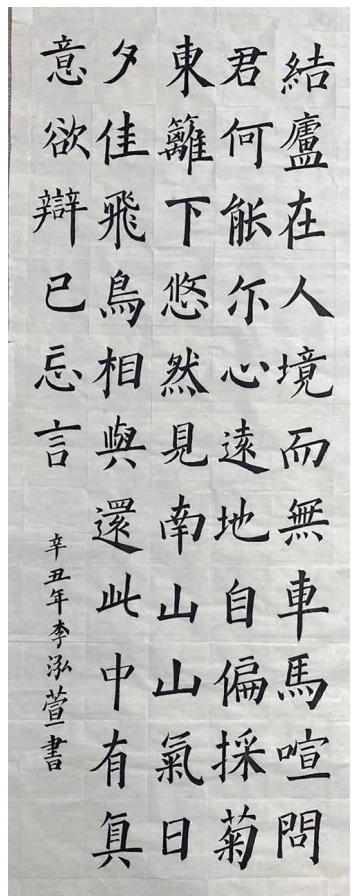 結廬在人境而無車馬喧問
君何能尓心遠地自偏採菊
東籬下悠然見南山山氣日
夕佳飛鳥相與還此中有真
意欲辯已忘言
辛丑年李泓萱書